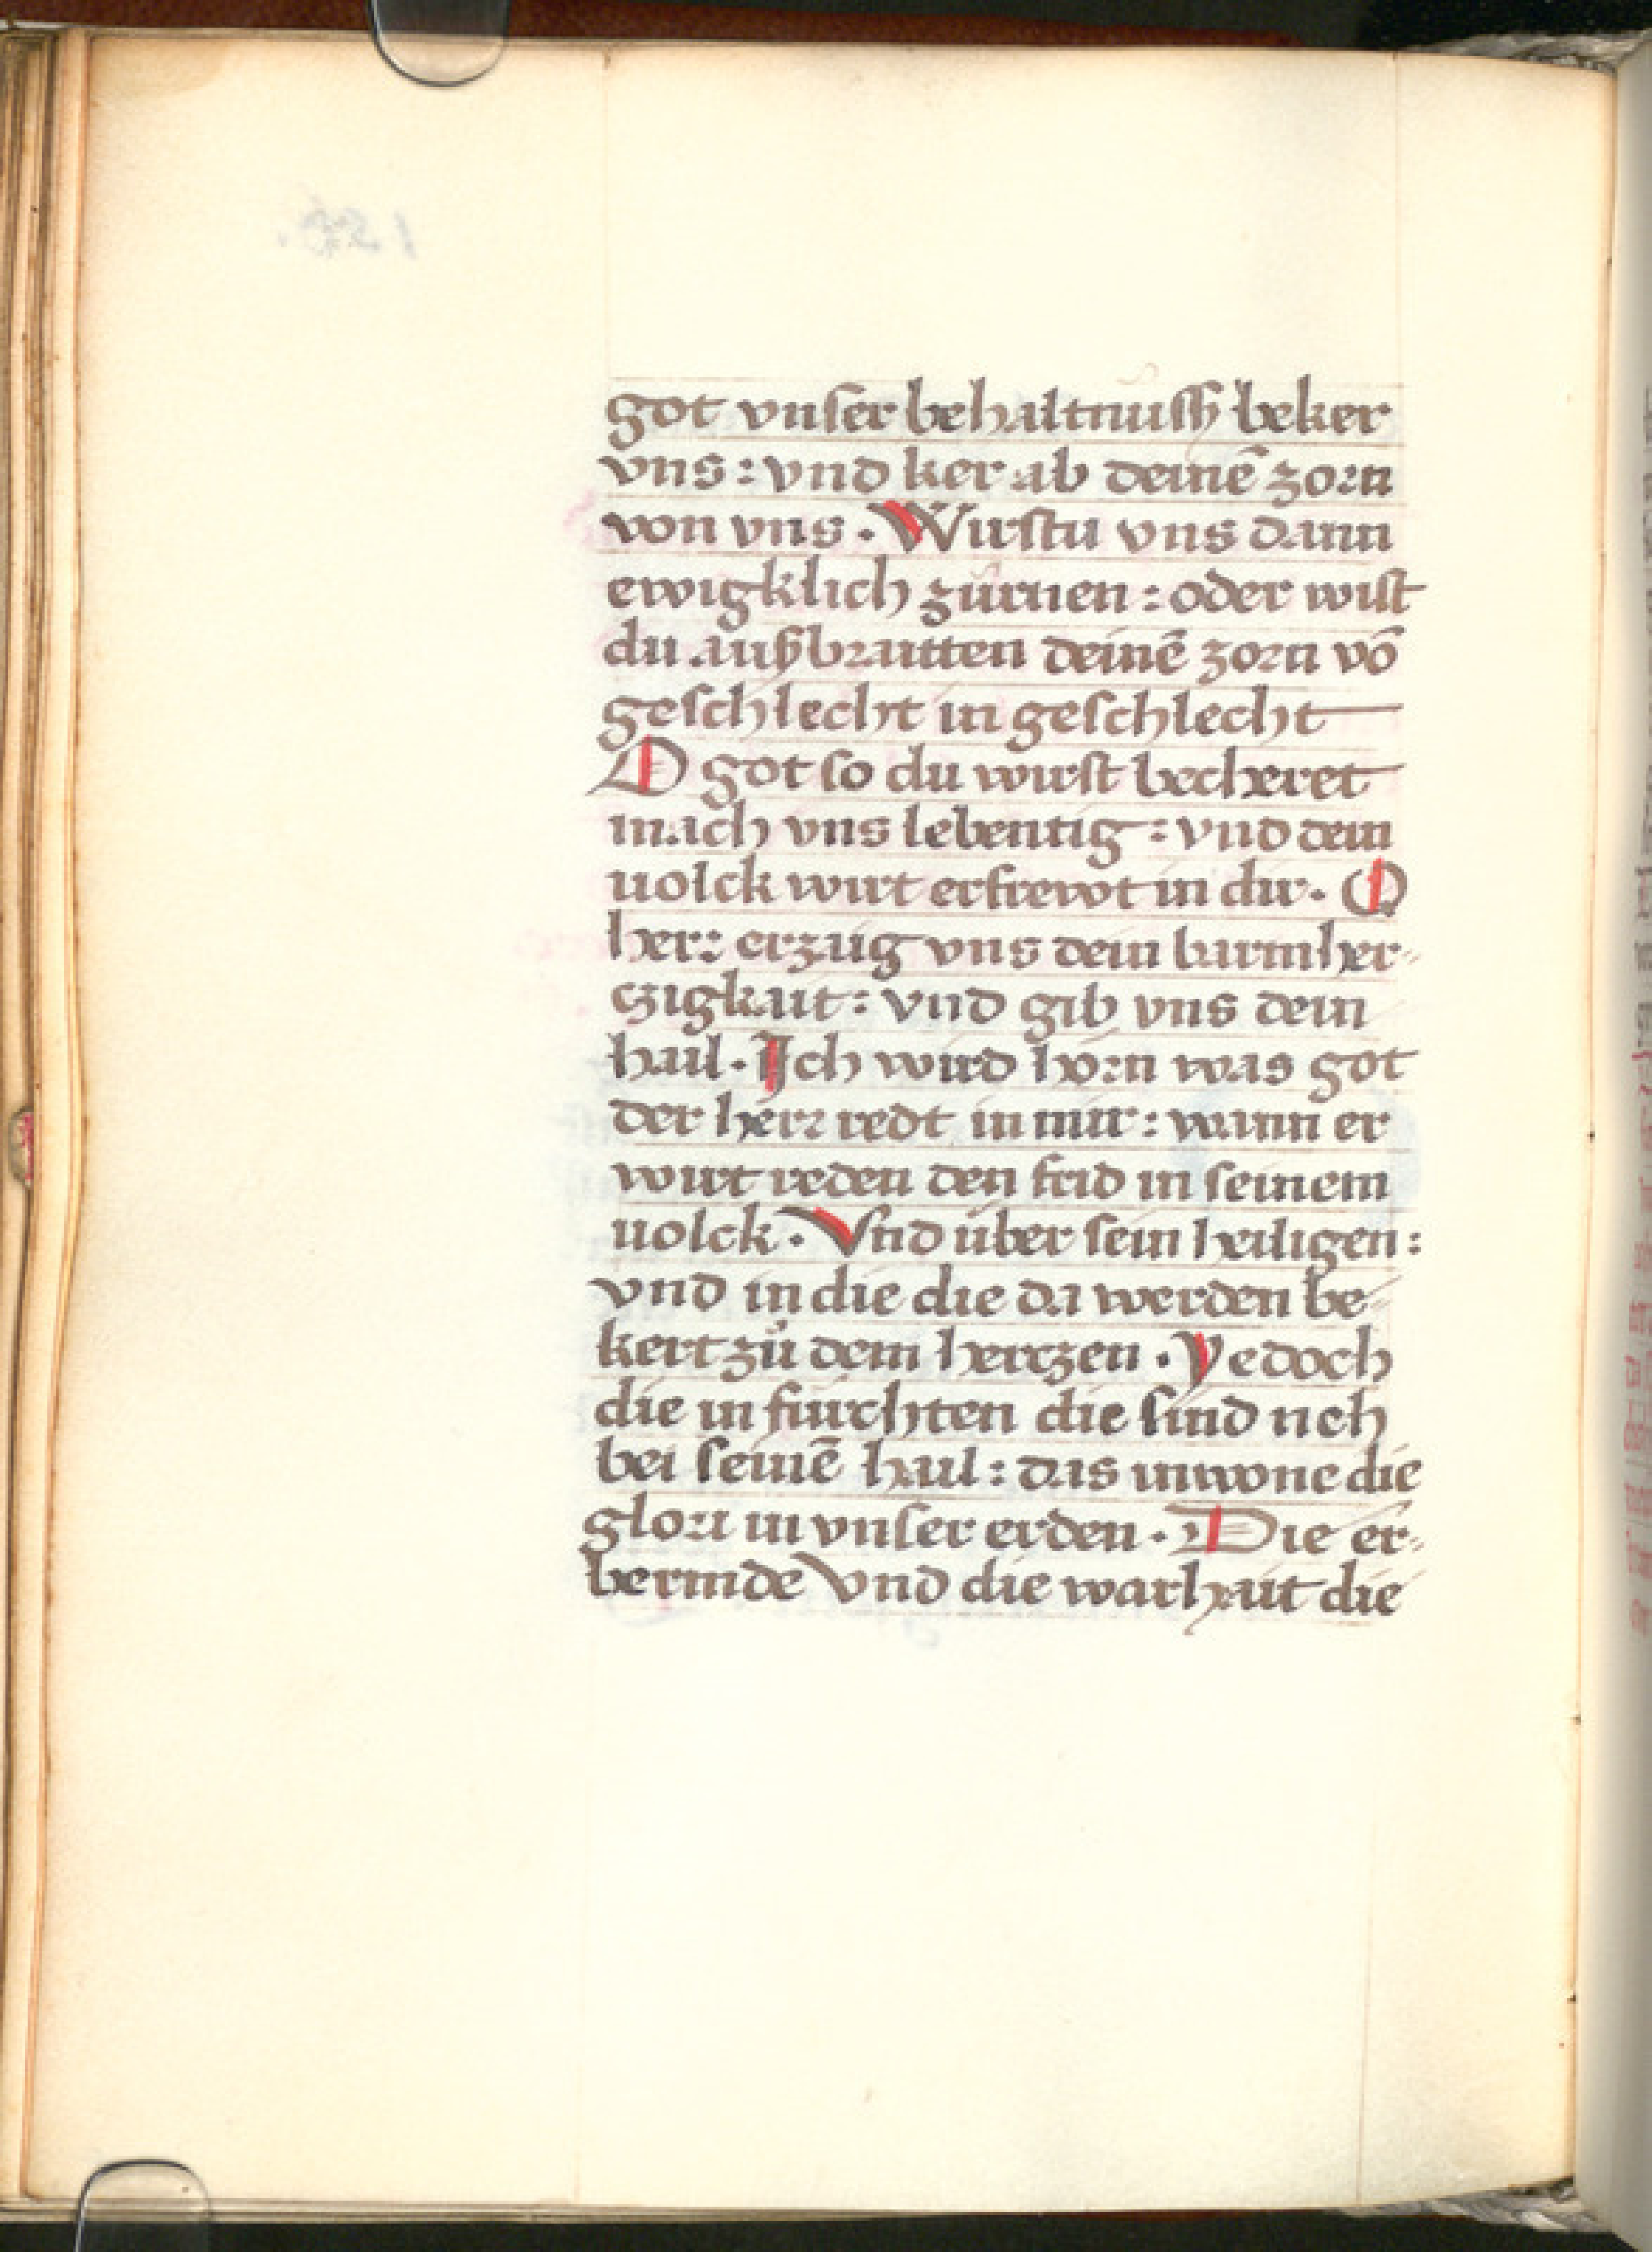 got vnſer behaltnuſſ beker
vns : vnd ker ab deinē zorn
von vns . Wirſtu vns dann
ewigklich zürnen : oder wiſt
du außbraitten deinē zorn vō
geſchlecht in geſchlecht
O got ſo du wirſt becheret
mach vns lebentig : vnd dein
uolck wirt erfrewt in dir . O
herr erzaig vns dein barmher-
czigkait : vnd gib vns dein
hail . Ich wird hörn was got
der herr redt in mir : wann er
wirt reden den frid in ſeinem
uolck . Vnd über ſein heiligen :
vnd in die die da werden be-
kert zů dem herczen . Yedoch
die in fürchten die ſind nch
bei ſeinē hail : das inwone die
glori in vnſer erden . Die er-
bermde Vnd die warhait die